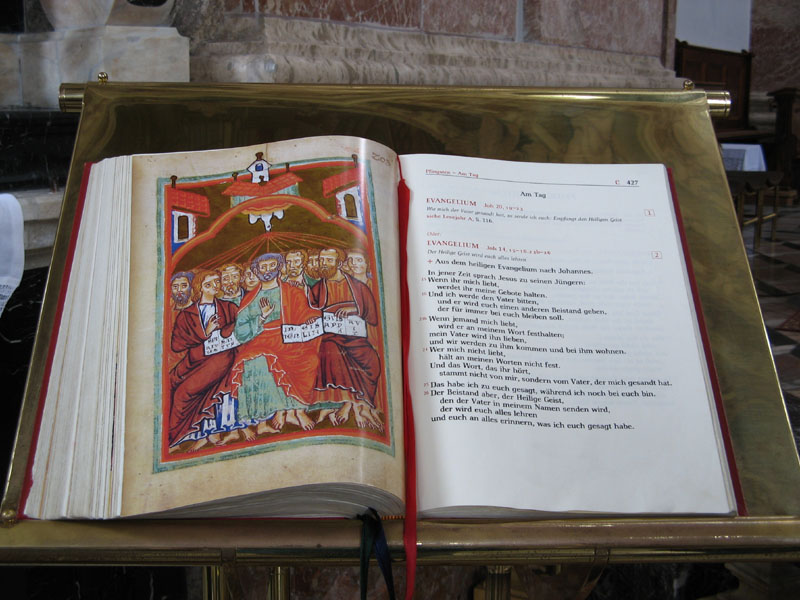 Pfingsten – Am Tag
C 427
Am Tag
EVANGELIUM Joh 20, 19–23
1
Wie mich der Vater gesandt hat, so sende ich euch: Empfangt den Heiligen Geist
siehe Lesejahr A, S. 116.
Oder:
EVANGELIUM Joh 14, 15–16.23b–26
2
Der Heilige Geist wird euch alles lehren
+ Aus dem heiligen Evangelium nach Johannes.
In jener Zeit sprach Jesus zu seinen Jüngern:
15 Wenn ihr mich liebt,
werdet ihr meine Gebote halten.
16 Und ich werde den Vater bitten,
und er wird euch einen anderen Beistand geben,
der für immer bei euch bleiben soll.
23b Wenn jemand mich liebt,
wird er an meinem Wort festhalten;
mein Vater wird ihn lieben,
und wir werden zu ihm kommen und bei ihm wohnen.
24 Wer mich nicht liebt,
hält an meinen Worten nicht fest.
Und das Wort, das ihr hört,
stammt nicht von mir, sondern vom Vater, der mich gesandt hat.
25 Das habe ich zu euch gesagt, während ich noch bei euch bin.
26 Der Beistand aber, der Heilige Geist,
den der Vater in meinem Namen senden wird,
der wird euch alles lehren
und euch an alles erinnern, was ich euch gesagt habe.